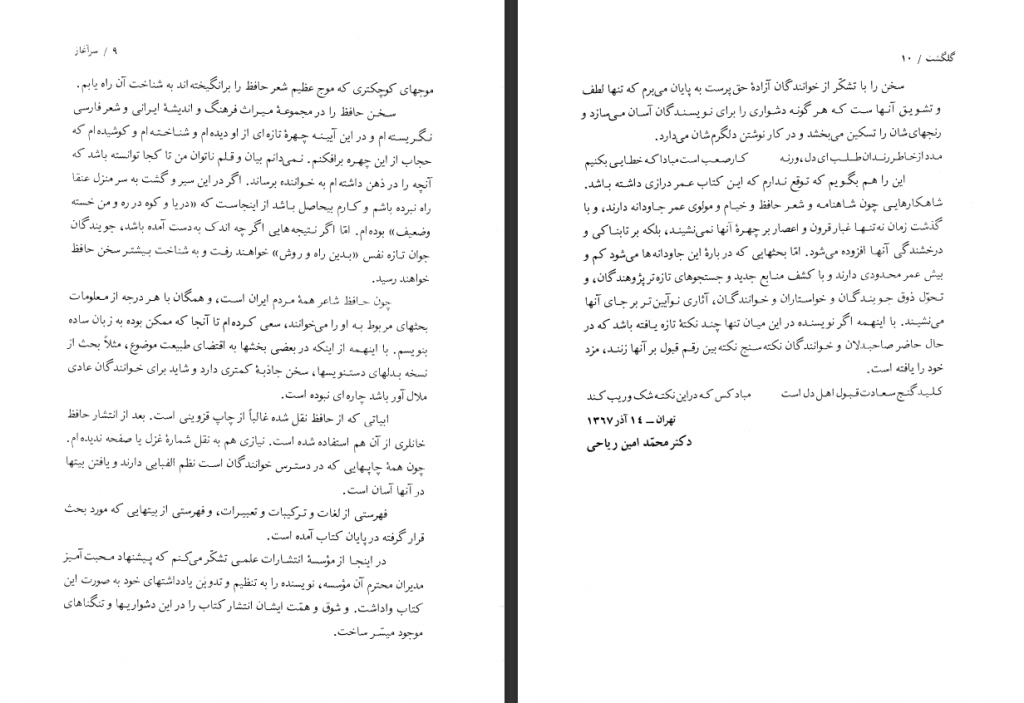 ۹ / سرآغاز
موجهای کوچکتری که موج عظیم شعر حافظ را برانگیخته‌اند به شناخت آن راه یابم.
سخن حافظ را در مجموعهٔ میراث فرهنگ و اندیشهٔ ایرانی و شعر فارسی
نگریسته‌ام و در این آیینه چهرهٔ تازه‌ای از او دیده‌ام و شناخته‌ام و کوشیده‌ام که
حجاب از این چهره برافکنم. نمی‌دانم بیان و قلم ناتوان من تا کجا توانسته باشد که
آنچه را در ذهن داشته‌ام به خواننده برساند. اگر در این سیر و گشت به سر منزل عنقا
راه نبرده باشم و کارم بیحاصل باشد از اینجاست که «دریا و کوه در ره و من خسته
و ضعیف» بوده‌ام. امّا اگر نتیجه‌هایی اگر چه اندک به‌دست آمده باشد، جویندگان
جوان تازه نفس «بدین راه و روش» خواهند رفت و به شناخت بیشتر سخن حافظ
خواهند رسید.
چون حافظ شاعر همهٔ مردم ایران است، و همگان با هر درجه از معلومات
بحثهای مربوط به او را می‌خوانند، سعی کرده‌ام تا آنجا که ممکن بوده به زبان ساده
بنویسم. با اینهمه از اینکه در بعضی بخشها به اقتضای طبیعت موضوع، مثلاً بحث از
نسخه بدلهای دستنویسها، سخن جاذبهٔ کمتری دارد و شاید برای خوانندگان عادی
ملال آور باشد چاره‌ای نبوده است.
ابیاتی که از حافظ نقل شده غالباً از چاپ قزوینی است. بعد از انتشار حافظ
خانلری از آن هم استفاده شده است. نیازی هم به نقل شمارهٔ غزل یا صفحه ندیده‌ام.
چون همهٔ چاپهایی که در دسترس خوانندگان است نظم الفبایی دارند و یافتن بیتها
در آنها آسان است.
فهرستی از لغات و ترکیبات و تعبیرات، و فهرستی از بیتهایی که مورد بحث
قرار گرفته در پایان کتاب آمده است.
در اینجا از مؤسسهٔ انتشارات علمی تشکّر می‌کنم که پیشنهاد محبت آمیز
مدیران محترم آن مؤسسه، نویسنده را به تنظیم و تدوین یادداشتهای خود به صورت این
کتاب واداشت. و شوق و همّت ایشان انتشار کتاب را در این دشواریها و تنگناهای
موجود میسّر ساخت.
گلگشت / ۱۰
سخن را با تشکّر از خوانندگان آزادهٔ حق‌پرست به پایان می‌برم که تنها لطف
و تشویق آنها ست که هر گونه دشواری را برای نویسندگان آسان می‌سازد و
رنجهای‌شان را تسکین می‌بخشد و در کار نوشتن دلگرم‌شان می‌دارد.
مدد از خاطر رندان طلب ای دل، ورنه کار صعب است مبادا که خطایی بکنیم
این را هم بگویم که توقع ندارم که این کتاب عمر درازی داشته باشد.
شاهکارهایی چون شاهنامه و شعر حافظ و خیام و مولوی عمر جاودانه دارند، و با
گذشت زمان نه‌تنها غبار قرون و اعصار بر چهرهٔ آنها نمی‌نشیند، بلکه بر تابناکی و
درخشندگی آنها افزوده می‌شود. امّا بحثهایی که در بارهٔ این جاودانه‌ها می‌شود کم و
بیش عمر محدودی دارند و با کشف منابع جدید و جستجوهای تازه‌تر پژوهندگان، و
تحوّل ذوق جویندگان و خواستاران و خوانندگان، آثاری نوآیین‌تر بر جای آنها
می‌نشیند. با اینهمه اگر نویسنده در این میان تنها چند نکتهٔ تازه یافته باشد که در
حال حاضر صاحبدلان و خوانندگان نکته‌سنج نکته‌بین رقم قبول بر آنها زنند، مزد
خود را یافته است.
کلید گنج سعادت قبول اهل دل است مباد کس که در این نکته شک و ریب کند
تهران ــ ۱۴ آذر ۱۳۶۷
دکتر محمّد امین ریاحی